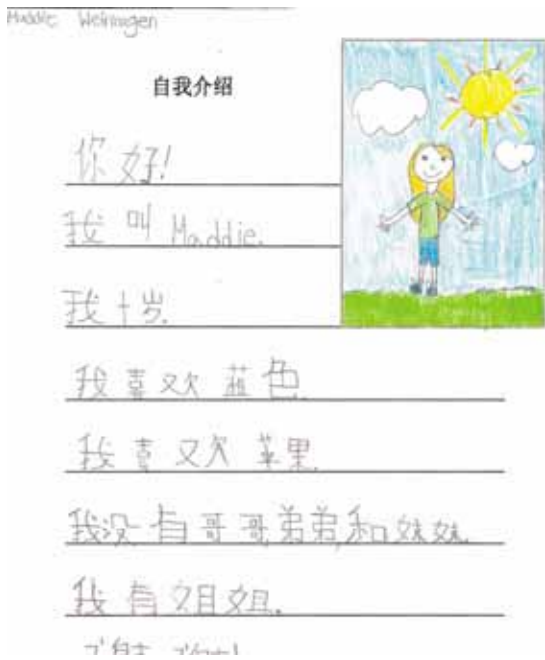 Maddie
自我介绍
你好!
我叫 Maddie.
我十岁.
我喜欢蓝色.
我喜欢苹果.
我没有哥哥弟弟,和妹妹.
我有姐姐.